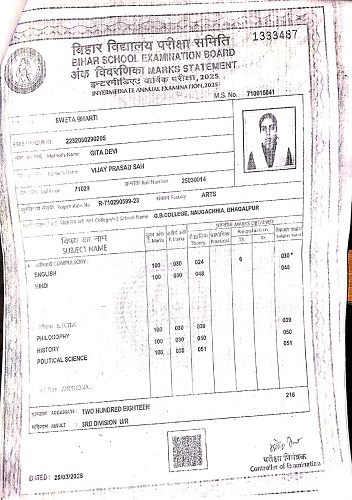 1333487
बिहार विद्यालय परीक्षा समिति
BIHAR SCHOOL EXAMINATION BOARD
अंक विवरणिका MARKS STATEMENT
इन्टरमीडिएट वार्षिक परीक्षा, 2025
INTERMEDIATE ANNUAL EXAMINATION, 2025
M.S. No. 710015041
SWETA BHARTI
2232050290205
Mother's Name GITA DEVI
Father's Name VIJAY PRASAD SAH
71029 Roll Number 25030014
Registration No. R-710290599-23 Faculty ARTS
College/+2 School Name G.B.COLLEGE, NAUGACHHIA, BHAGALPUR
विषय का नाम
SUBJECT NAME
MARKS OBTAINED
COMPULSORY:
ENGLISH 100 030 024 6 030*
HINDI 100 030 048 048
ELECTIVE
PHILOSOPHY 100 030 039
HISTORY 100 030 050 050
POLITICAL SCIENCE 100 030 051 051
218
AGGREGATE : TWO HUNDRED EIGHTEEN
RESULT : 3RD DIVISION U/R
DATED : 25/03/2025
परीक्षा नियंत्रक
Controller of Examination